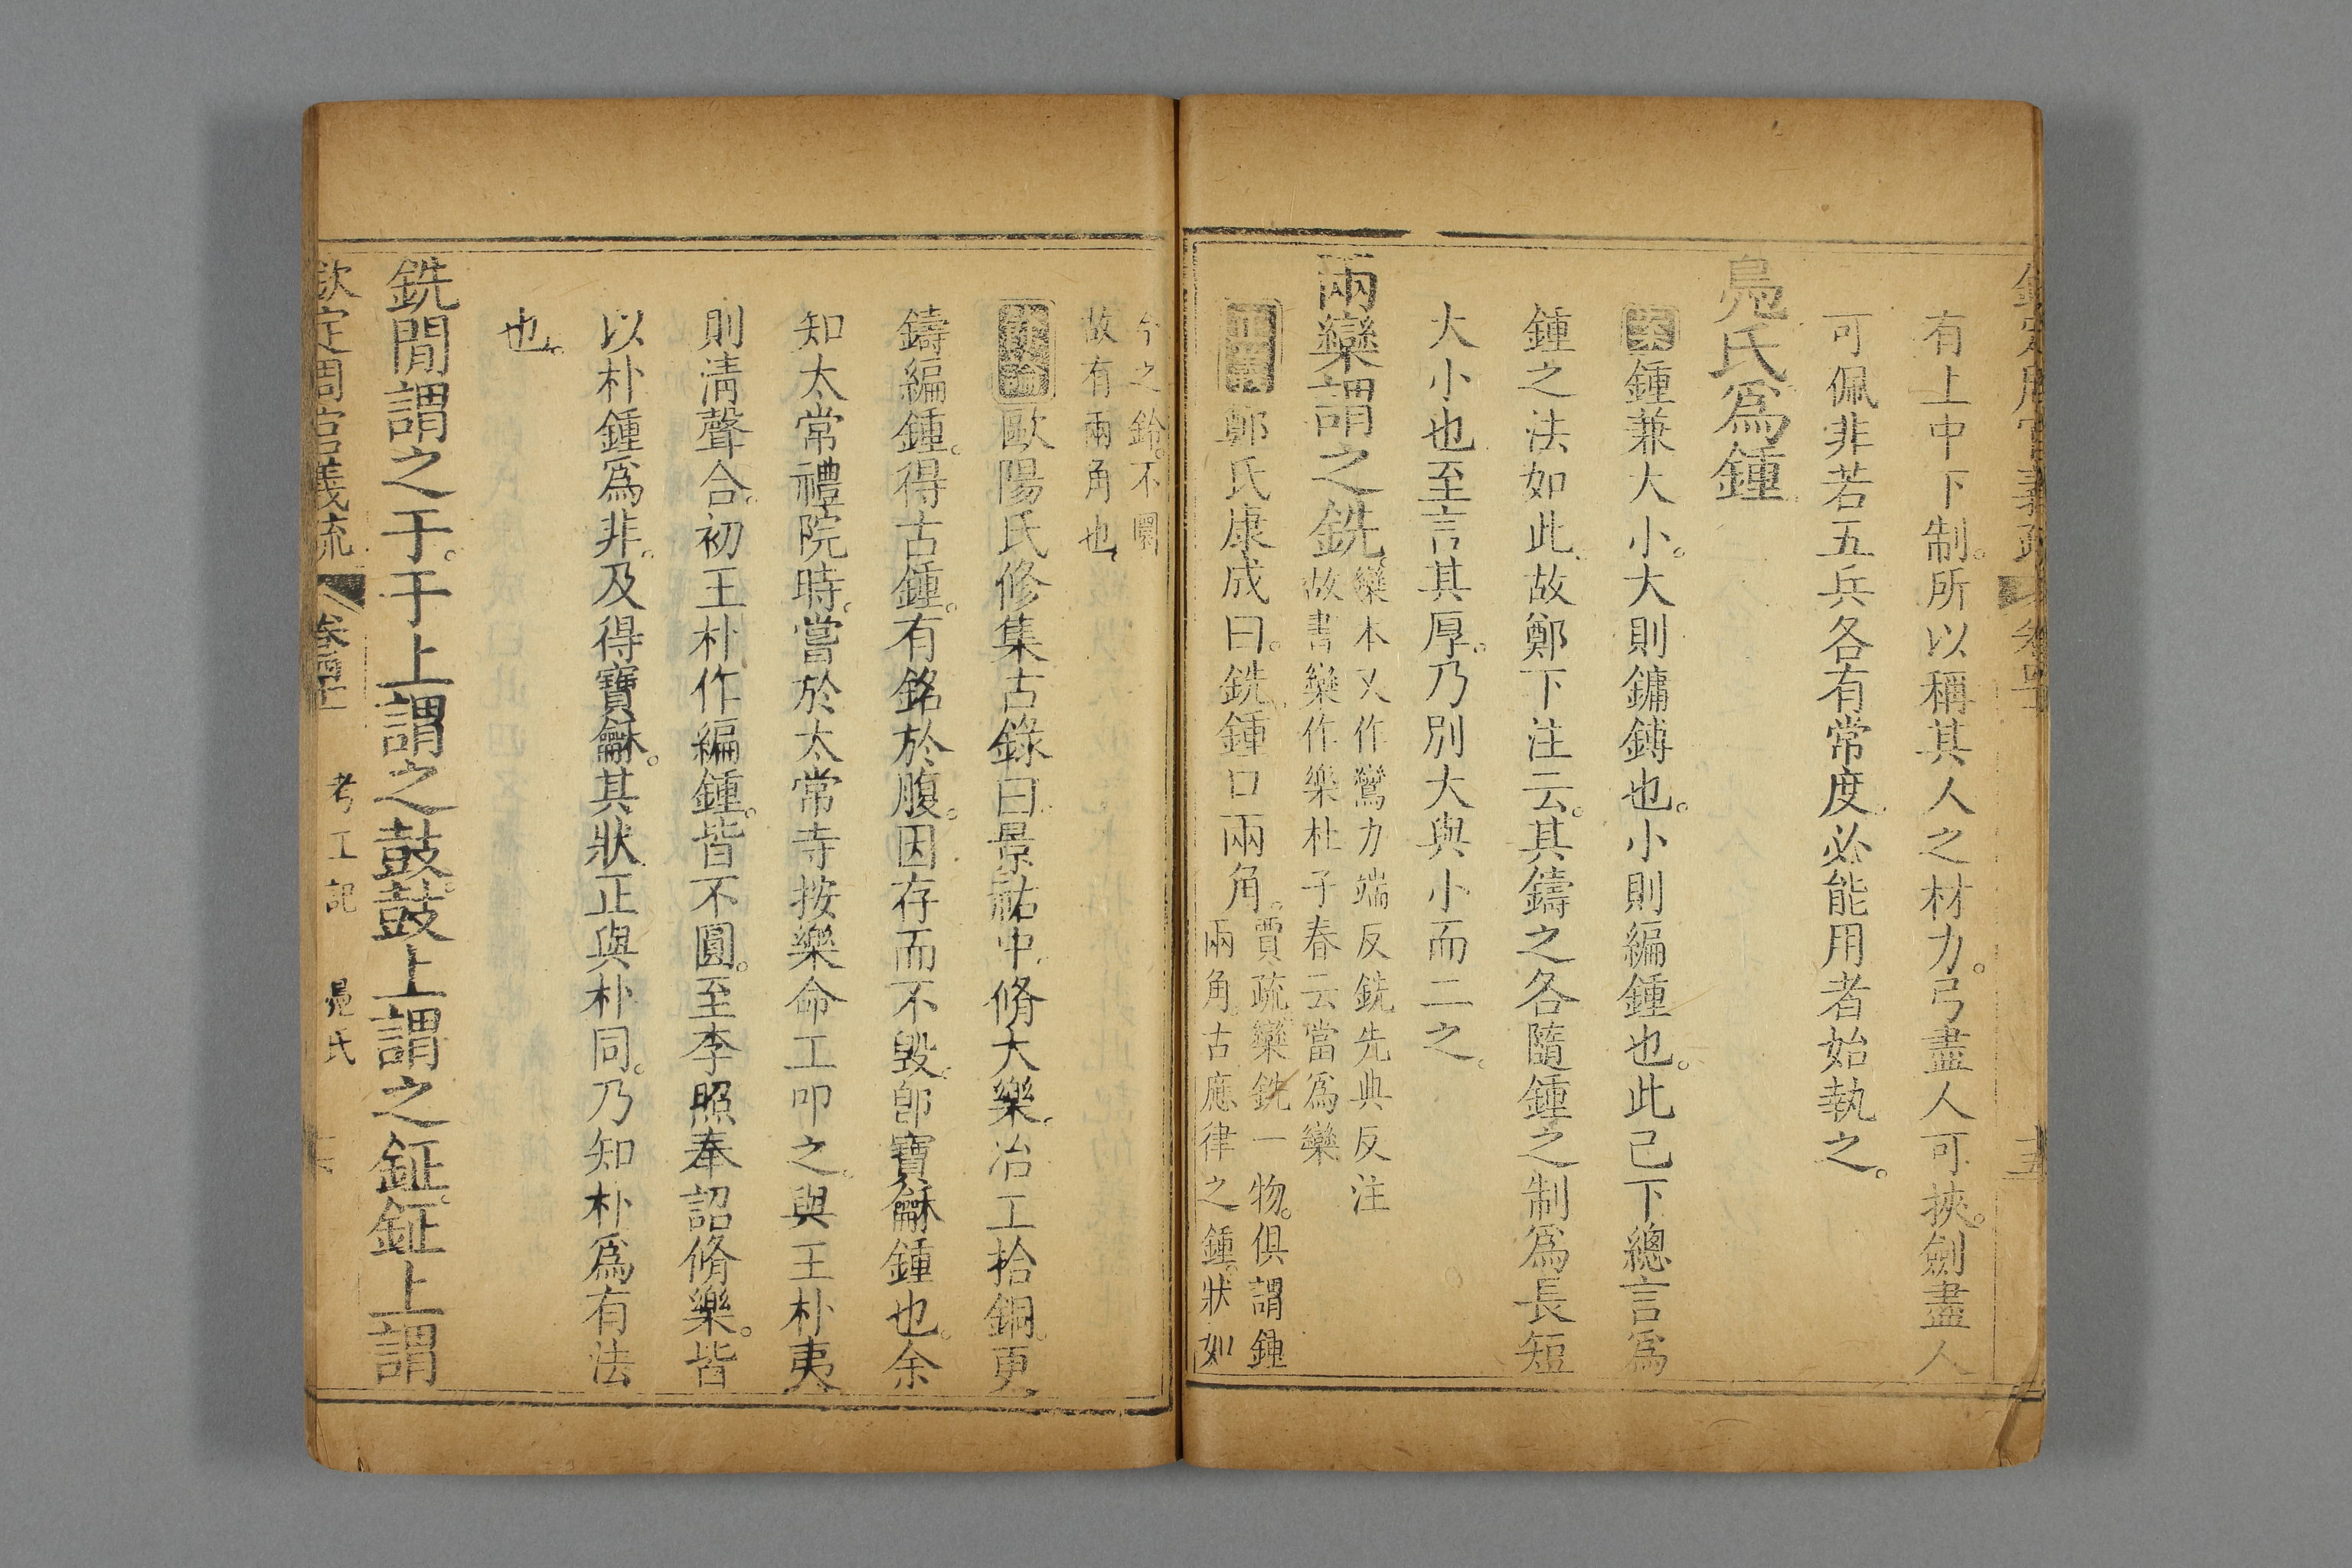 有上中下制。所以稱其人之材力。弓盡人可挾。劍盡人
可佩非若五兵各有常度。必能用者始執之。
鳧氏爲鍾
案鍾兼大小。大則鏞鎛也。小則編鍾也。此已下總言爲
鍾之法如此。故鄭下注云。其鑄之各隨鍾之制爲長短
大小也至言其厚。乃別大與小而二之。
兩欒謂之銑
欒本又作鸞力端反銑先典反注
故書欒作樂杜子春云當爲欒
正義鄭氏康成曰。銑鍾口兩角。
賈疏欒銑一物。俱謂鍾
兩角。古應律之鍾。狀如
今之鈴。不圜
故有兩角也。
餘論歐陽氏修集古錄曰。景祐中。脩大樂。冶工拾銅。更
鑄編鍾。得古鍾。有銘於腹。因存而不毀。卽寶龢鍾也。余
知太常禮院時。嘗於太常寺按樂命工叩之。與王朴夷
則清聲合。初王朴作編鍾。皆不圓。至李照奉詔脩樂。皆
以朴鍾爲非。及得寶龢。其狀正與朴同。乃知朴爲有法
也。
銑閒謂之于。于上謂之鼓。鼓上謂之鉦。鉦上謂
欽定周官義疏 考工記 鳧氏